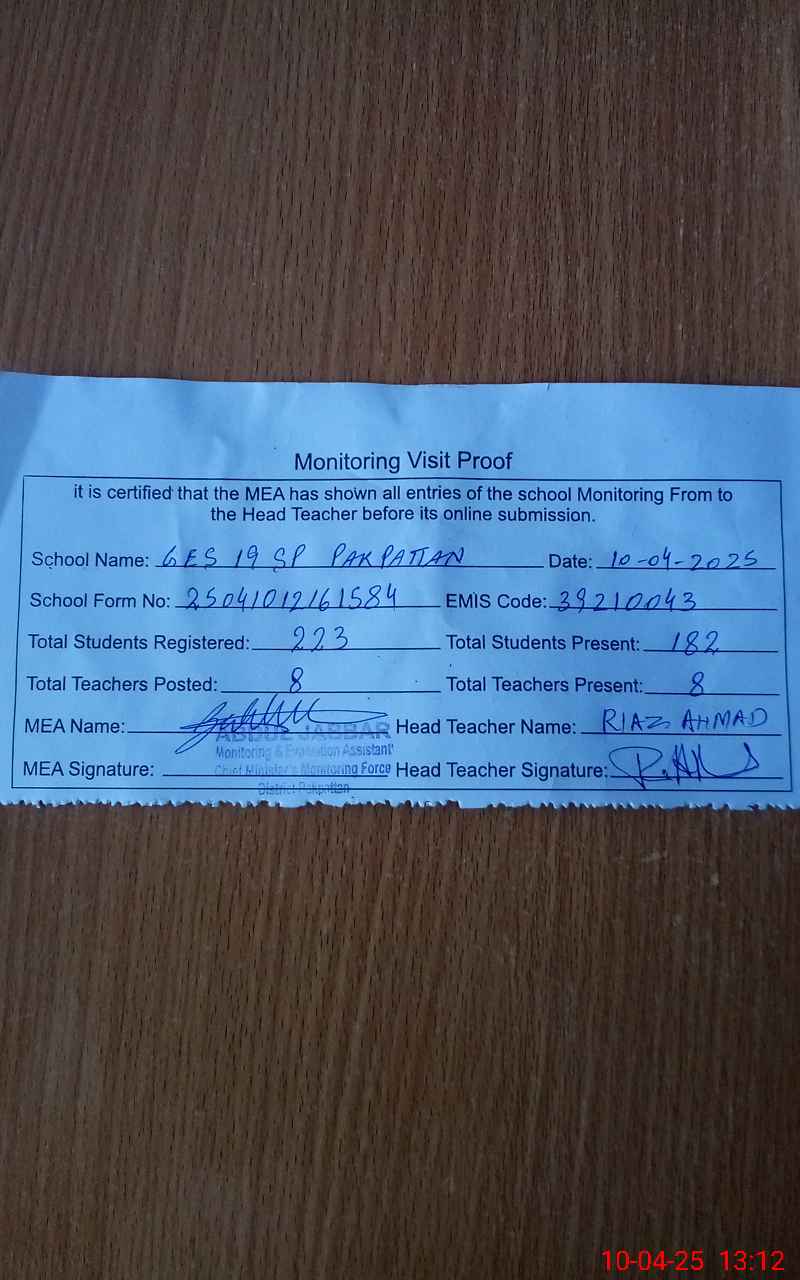 Monitoring Visit Proof
it is certified that the MEA has shown all entries of the school Monitoring From to
the Head Teacher before its online submission.
School Name: GES 19 SP PAKPATTAN Date: 10-04-2025
School Form No: 25041012161584 EMIS Code: 39210043
Total Students Registered: 223 Total Students Present: 182
Total Teachers Posted: 8 Total Teachers Present: 8
MEA Name: ABDUL JABBAR Head Teacher Name: RIAZ AHMAD
Monitoring & Evaluation Assistant
MEA Signature: Chief Minister's Monitoring Force Head Teacher Signature:
District Pakpattan
10-04-25 13:12